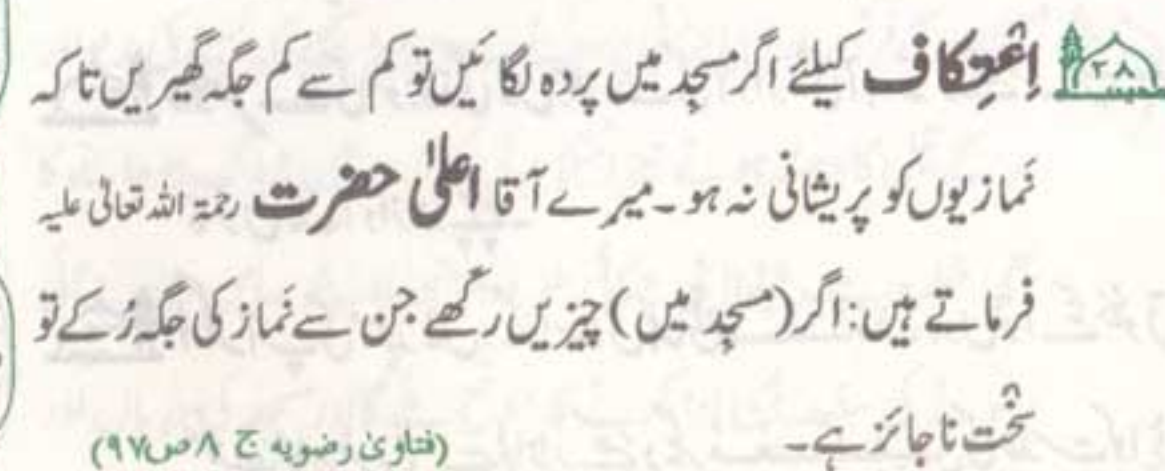 ۲۸ اِعْتِکاف کیلئے اگر مسجِد میں پردہ لگائیں تو کم سے کم جگہ گھیریں تا کہ
نَمازیوں کو پریشانی نہ ہو۔ میرے آقا اعلیٰ حضرت رحمۃ اللہ تعالٰی علیہ
فرماتے ہیں: اگر (مسجِد میں) چیزیں رکھے جن سے نَماز کی جگہ رُکے تو
سَخْت ناجائز ہے۔ (فتاویٰ رضویہ ج ۸ ص ۹۷)